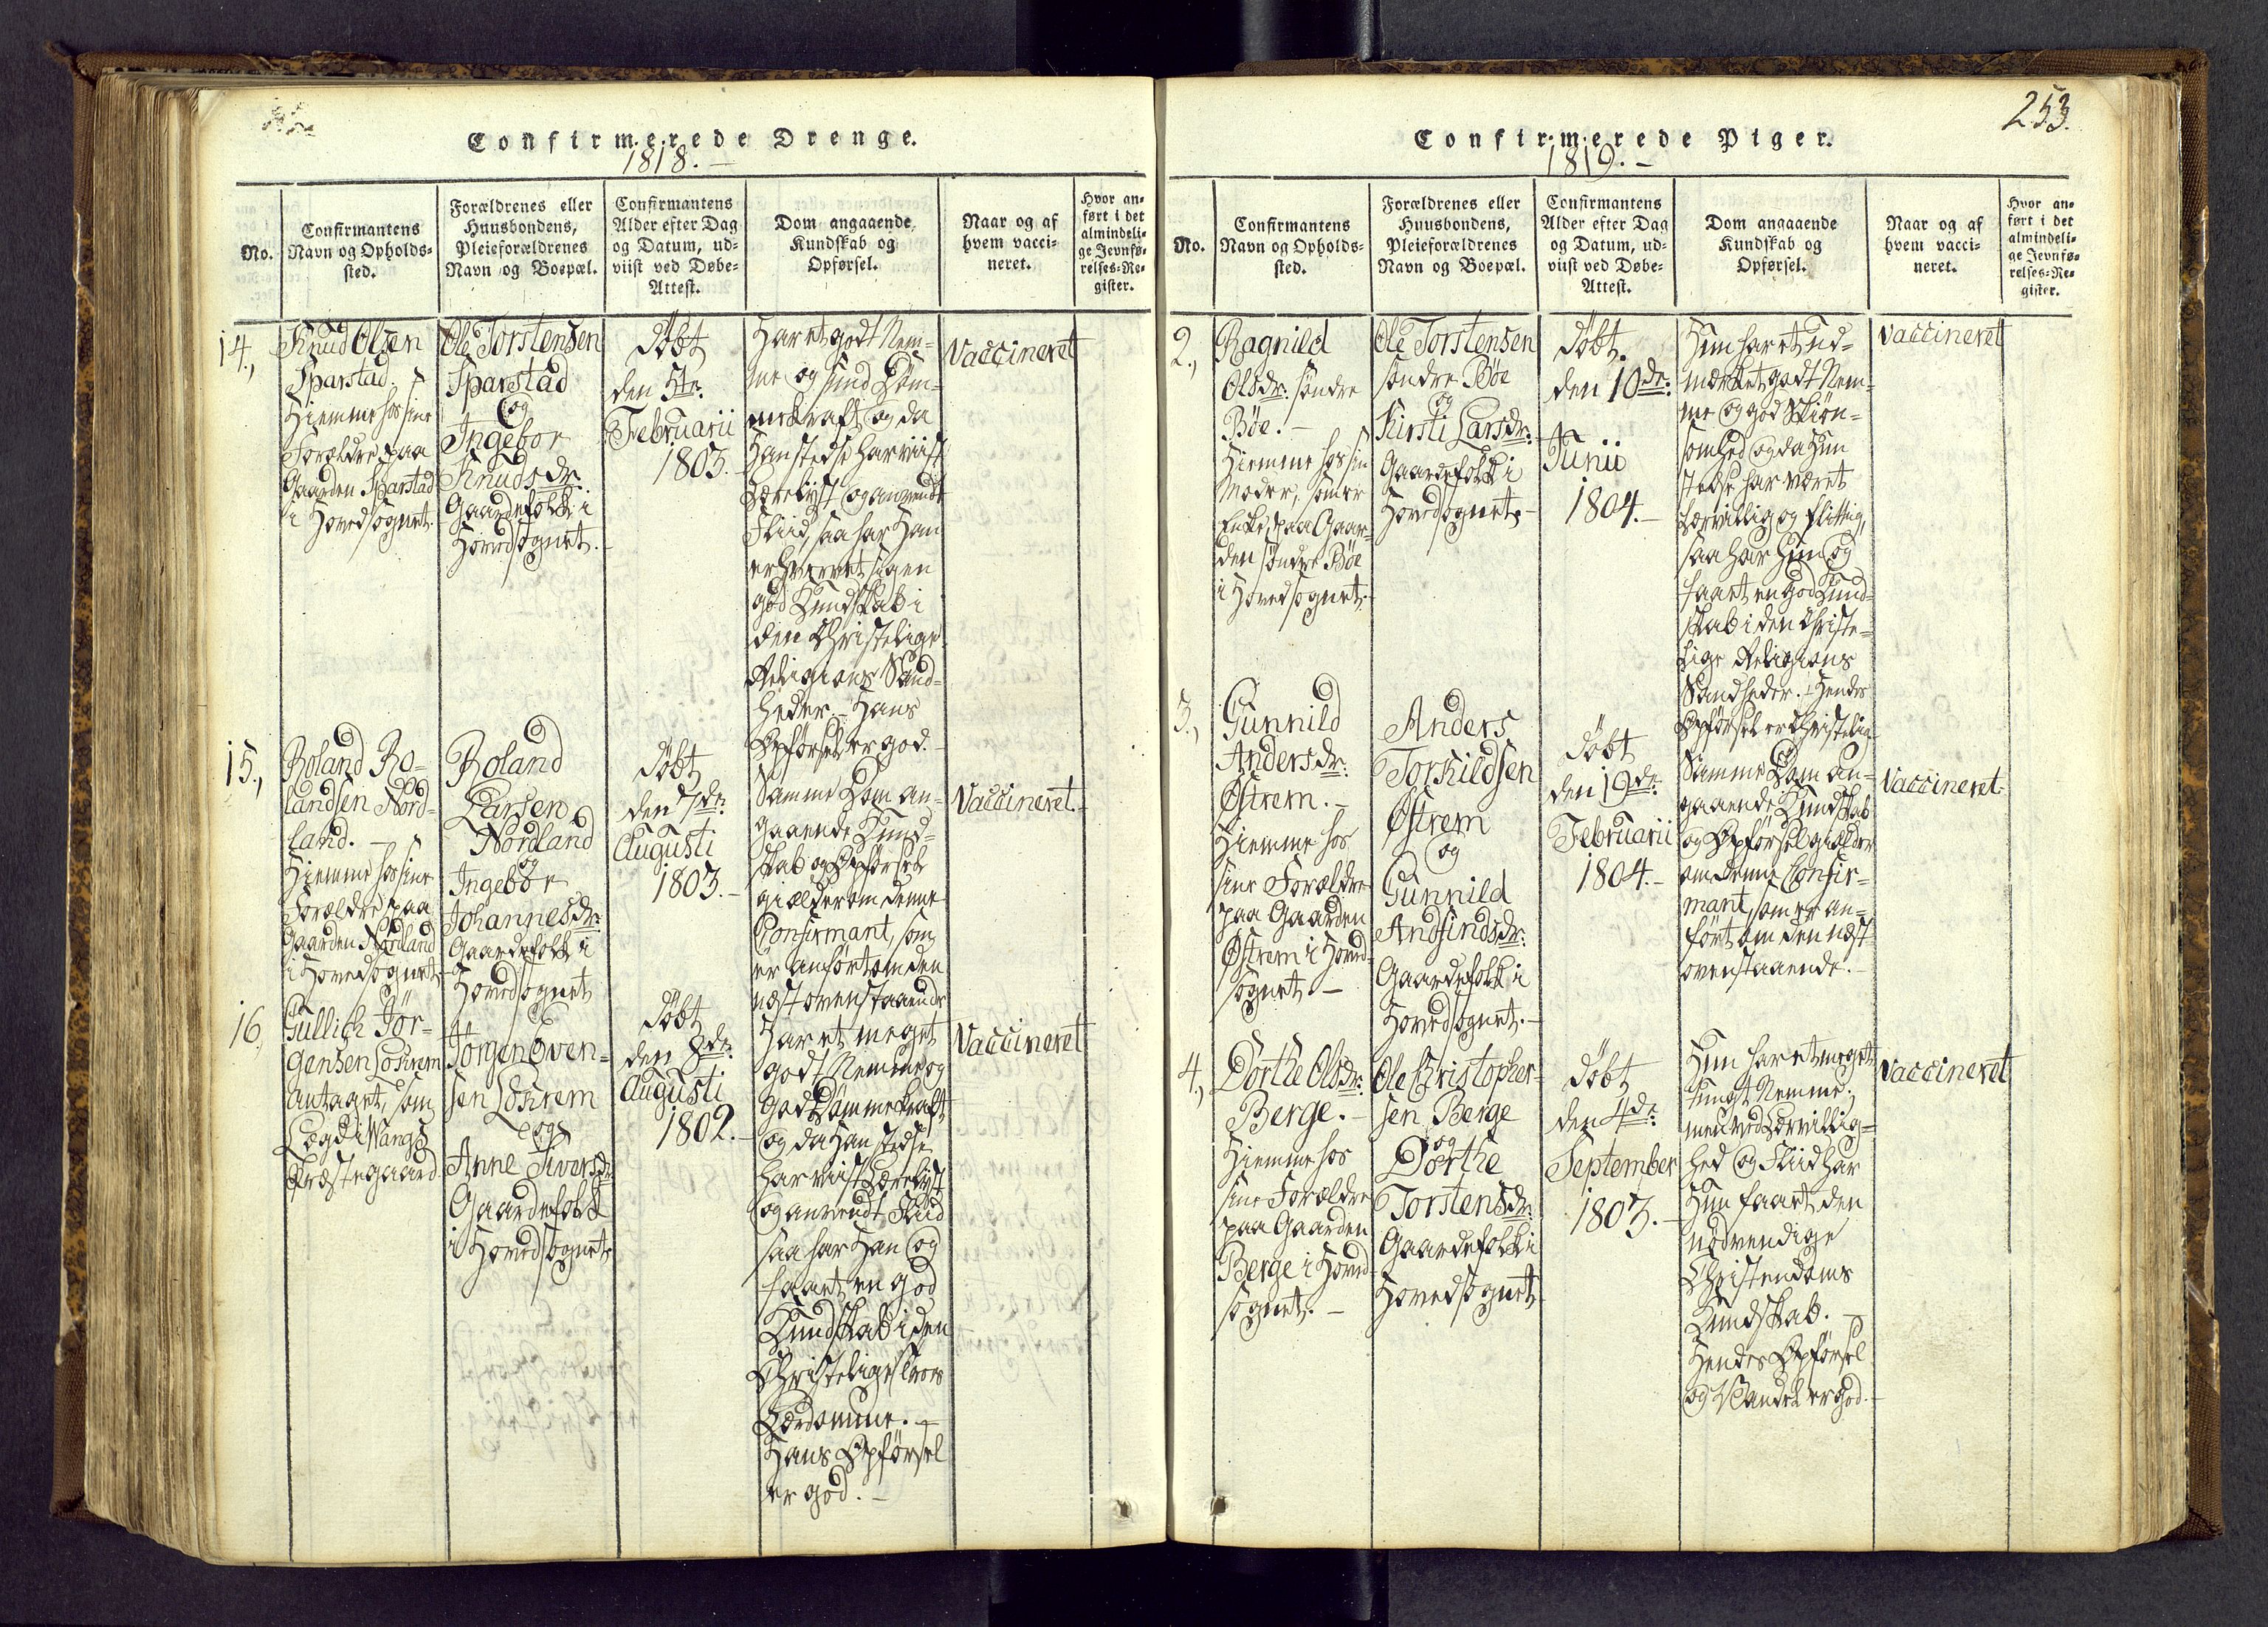 Confirmerede Drenge.
1818. –
No.
Confirmantens
Navn og Opholds-
sted.
Forældrenes eller
Huusbondens,
Pleieforældrenes
Navn og Boepæl.
Confirmantens
Alder efter Dag
og Datum, ud-
viist ved Døbe-
Attest.
Dom angaaende
Kundskab og
Opførsel.
Naar og af
hvem vacci-
neret.
Hvor an-
ført i det
almindeli-
ge Jevnfø-
relses-Re-
gister.
14.,
Knud Olsen
Sparstad.
Hiemme hos sine
Forældre paa
Gaarden Sparstad
i Hovedsognet.
Ole Torstensen
Sparstad
og
Ingebor
Knudsdr.
Gaardefolk i
Hovedsognet.
Døbt
den 5te
Februarii
1803.
Har et godt Nem-
me og sund Döm-
mekraft og da
Han stedse har viist
Lærelyst og anvendt
Fliid, saa har Han
erhvervet sig en
god Kundskab i
den Christelige
Religions Sand-
heder. – Hans
Opförsel er god. –
Vaccineret
15.,
Roland Ro-
landsen Nord-
land. –
Hiemme hos sine
Forældre paa
Gaarden Nordland
i Hovedsognet
Roland
Larsen
Nordland
og
Ingebor
Johannesdr.
Gaardefolk i
Hovedsognet
Döbt
den 7de
Augusti
1803. –
Samme Dom an-
gaaende Kund-
skab og Opførsel
giælder om denne
Confirmant, som
er anført om den
næst ovenstaaende
Vaccineret.
16,
Gullich Jör-
gensen Löhrem
antaget, som
Lægd i Wangs
Præstegaard
Jörgen Even-
sen Löhrem
og
Anne Iversdr.
Gaardefolk
i Hovedsognet
Döbt
den 8de
Augusti
1802. –
Har et meget
godt Nemme og
god Dömmekraft
og da Han stedse
har viist Lærelyst
og anvendt Fliid
saa har Han og
faaet en god
Kundskab i den
Christelige Troes
Lærdomme. –
Hans Opförsel
er god. –
Vaccineret
253.
Confirmerede Piger.
1819. –
No.
Confirmantens
Navn og Opholds-
sted.
Forældrenes eller
Huusbondens,
Pleieforældrenes
Navn og Boepæl.
Confirmantens
Alder efter Dag
og Datum, ud-
viist ved Døbe-
Attest.
Dom angaaende
Kundskab og
Opførsel.
Naar og af
hvem vacci-
neret.
Hvor an-
ført i det
almindeli-
ge Jevnfø-
relses-Re-
gister.
2.,
Ragnild
Olsdr. söndre
Böe. –
Hiemme hos sin
Moder, som er
Enke paa Gaar-
den söndre Böe
i Hovedsognet.
Ole Torstensen
söndre Böe
og
Kirsti Larsdr.
Gaardefolk i
Hovedsognet. –
Döbt.
den 10de
Junii
1804. –
Hun har et ud-
mærket godt Nem-
me og god Skiön-
somhed og da Hun
stedse har været
Lærvillig og flittig,
saa har Hun og
faaet en god Kund-
skab i den Christe-
lige Religions
Sandheder. – Hendes
Opförsel er Christelig
Vaccineret
3.,
Gunnild
Andersdr.
Østrem. –
Hiemme hos
sine Forældre
paa Gaarden
Østrem i Hoved-
sognet. –
Anders
Torkildsen
Østrem
og
Gunnild
Andfindsdr.
Gaardefolk i
Hovedsognet. –
Döbt
den 19de
Februarii
1804. –
Samme Dom an-
gaaende Kundskab
og Opförsel giælder
om denne Confir-
mant, som er an-
fört om den næst
ovenstaaende. –
Vaccineret.
4.,
Dorthe Olsdr.
Berge. –
Hiemme hos
sine Forældre
paa Gaarden
Berge i Hoved-
sognet. –
Ole Christopher-
sen Berge
og
Dorthe
Torstensdr.
Gaardefolk i
Hovedsognet
Döbt
den 4de
September
1803. –
Hun har et meget
tungt Nemme;
men ved Lærvillig-
hed og Fliid har
Hun faaet den
nödvendige
Christendoms
Kundskab. –
Hendes Opförsel
og Vandel er god. –
Vaccineret